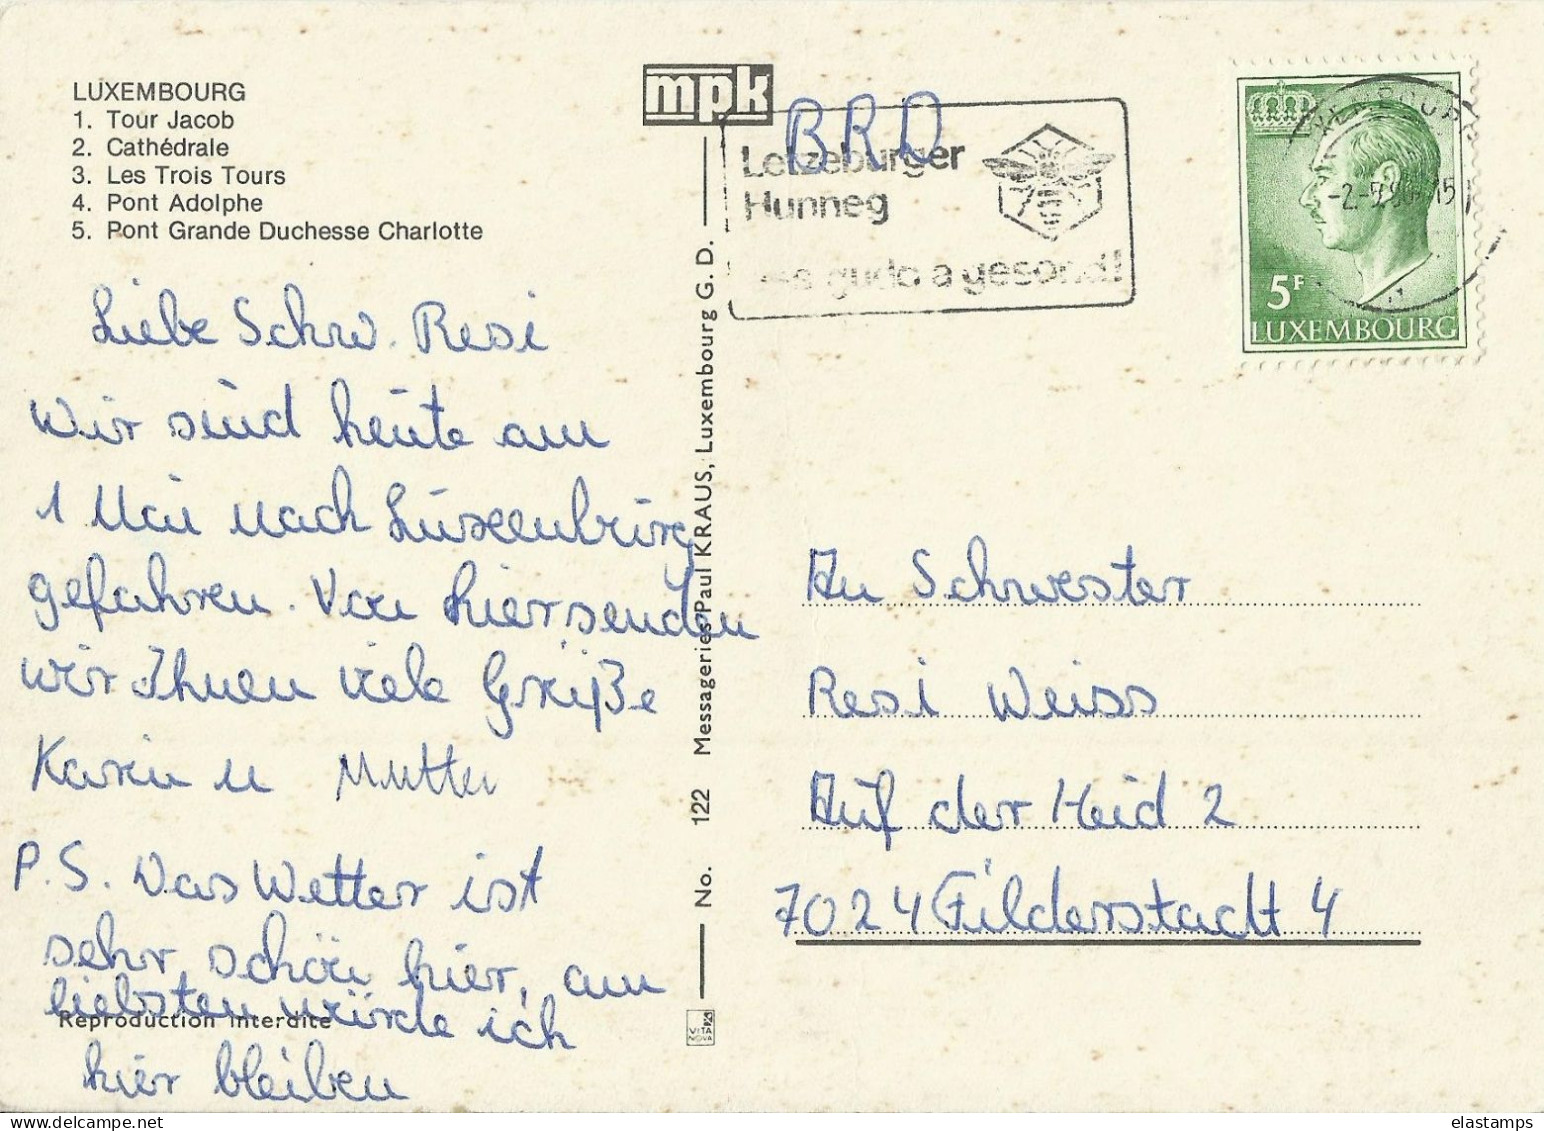 LUXEMBOURG
1. Tour Jacob
2. Cathédrale
3. Les Trois Tours
4. Pont Adolphe
5. Pont Grande Duchesse Charlotte
Liebe Schw. Resi
Wir sind heute am
1 Mai nach Luxemburg
gefahren. Von hier senden
wir Ihnen viele Grüße
Karin u Mutter
P.S. Das Wetter ist
sehr schön hier, am
liebsten würde ich
Reproduction interdite
hier bleiben
mpk
No. 122 Messageries Paul KRAUS, Luxembourg G. D.
VITA
NOVA
BRD
Letzeburger
Hunneg
gudd a gesond!
LUXEMBOURG
-2.-5 15
5F
LUXEMBOURG
An Schwester
Resi Weiss
Auf der Heid 2
7024 Filderstadt 4
elastamps